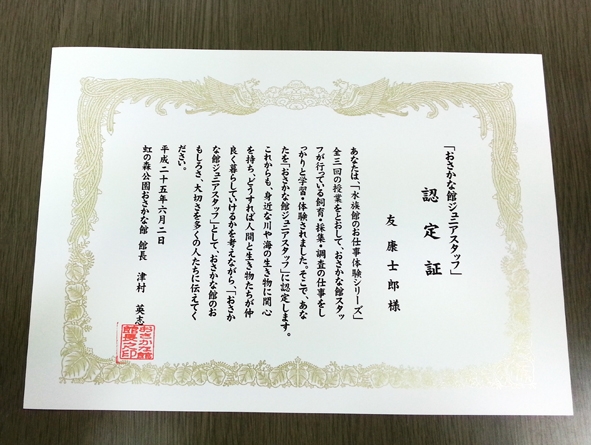 「おさかな館ジュニアスタッフ」
認定証
友 康士郎 様
あなたは、「水族館のお仕事体験シリーズ」
全三回の授業をとおして、おさかな館スタッ
フが行っている飼育・採集・調査の仕事をし
っかりと学習・体験されました。そこで、あな
たを「おさかな館ジュニアスタッフ」に認定します。
これからも、身近な川や海の生き物に関心
を持ち、どうすれば人間と生き物たちが仲
良く暮らしていけるかを考えながら、「おさか
な館ジュニアスタッフ」として、おさかな館のお
もしろさ、大切さを多くの人たちに伝えてく
ださい。
平成二十五年六月二日
虹の森公園おさかな館 館長 津村 英志
おさかな館
館長之印